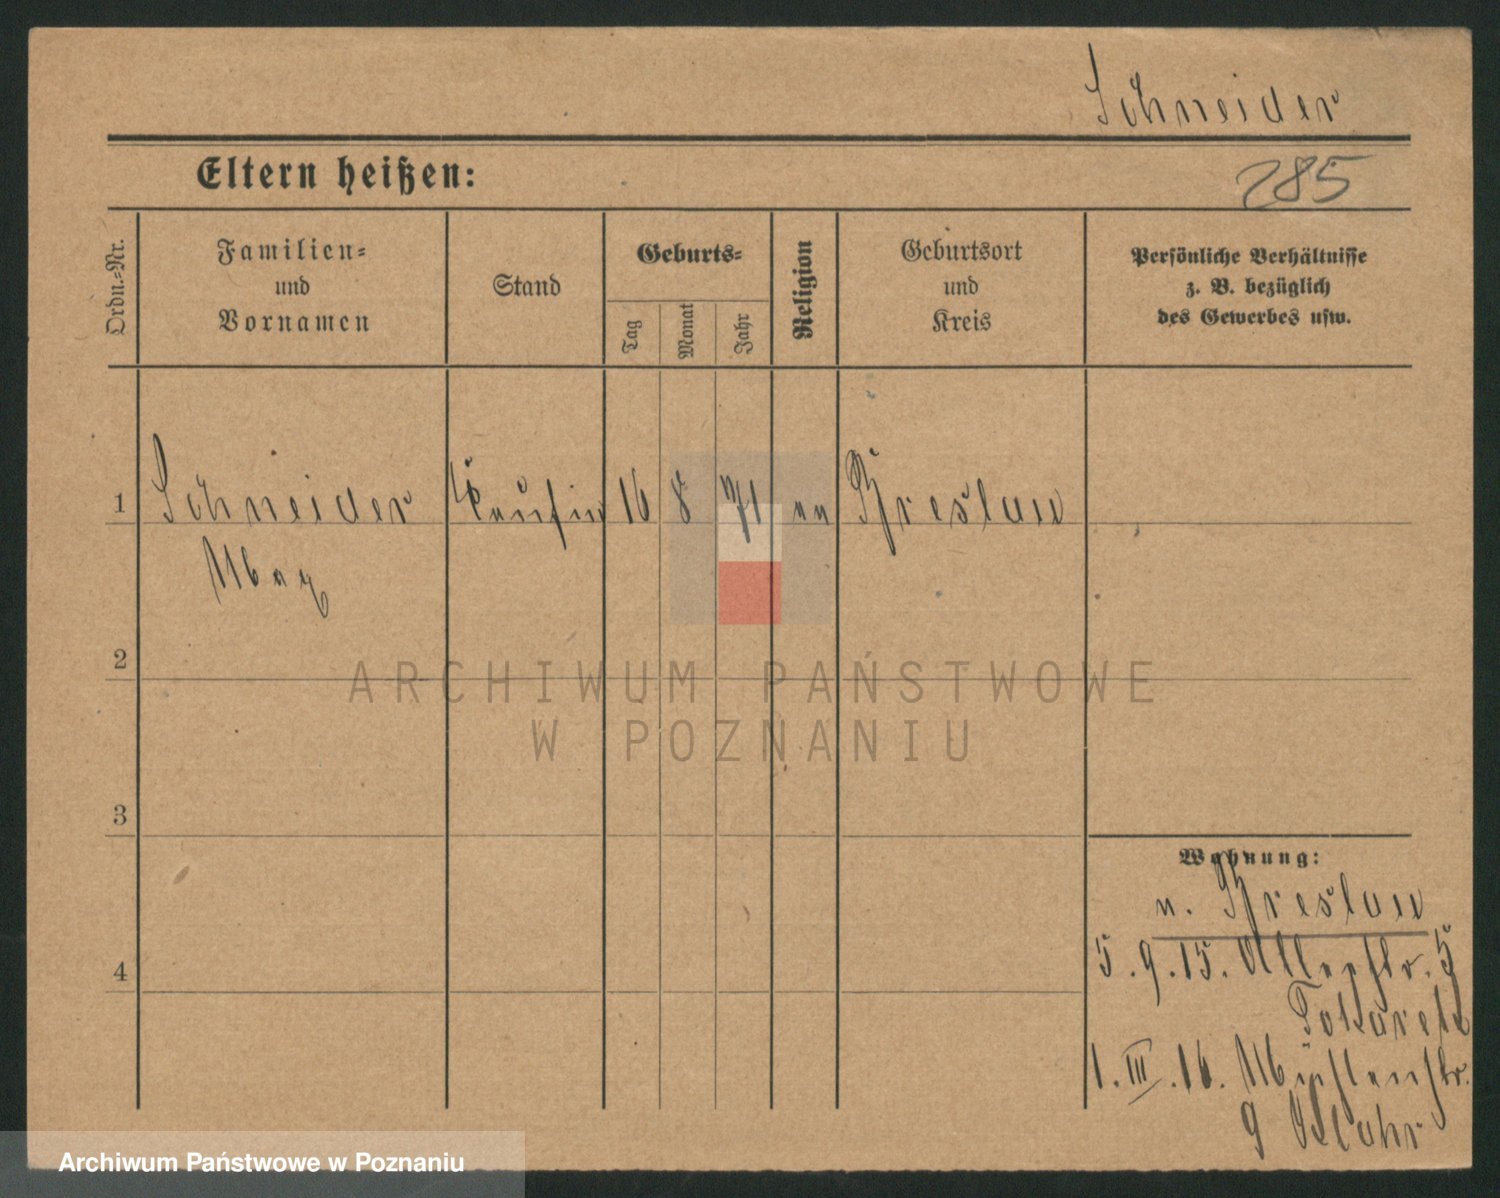 Schneider
Eltern heißen:
285
Ordn.-Nr.
Familien-
und
Vornamen
Stand
Geburts-
Tag
Monat
Jahr
Religion
Geburtsort
und
Kreis
Persönliche Verhältnisse
z. B. bezüglich
des Gewerbes usw.
1
Schneider
16
8
71
Breslau
Max
2
ARCHIWUM PAŃSTWOWE
W POZNANIU
3
Wohnung:
n. Breslau
4
5.9.15.
5
1.III.16.
9
Archiwum Państwowe w Poznaniu